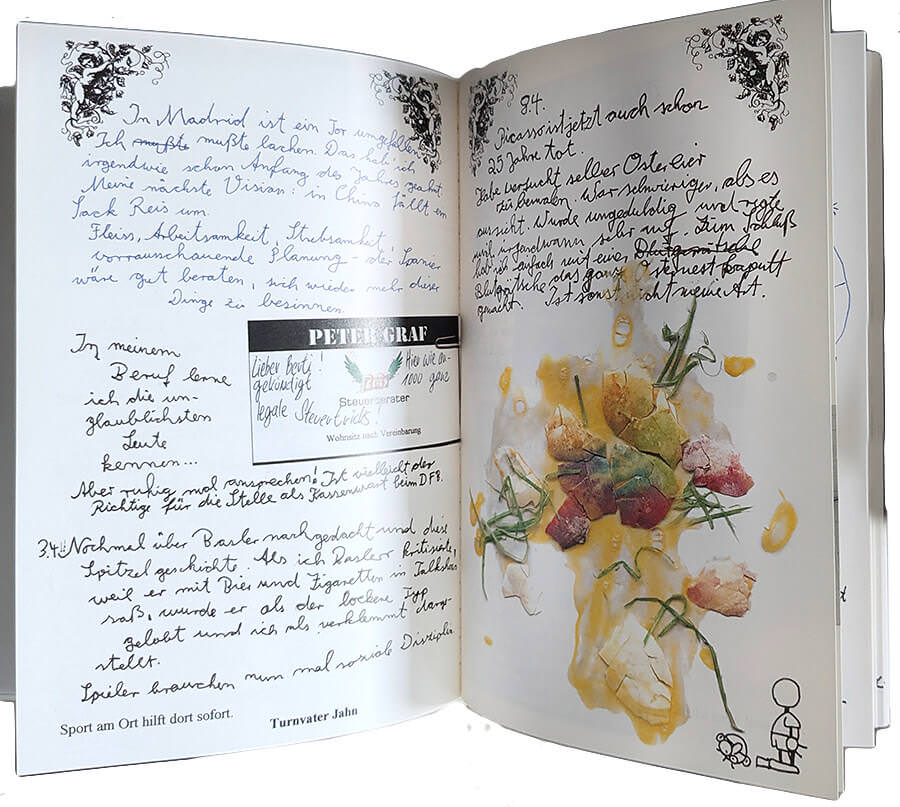 In Madrid ist ein Tor umgefallen.
Ich mußte mußte lachen. Das hab' ich
irgendwie schon Anfang des Jahres geahnt
Meine nächste Vision: in China fällt ein
Sack Reis um.
Fleiss, Arbeitsamkeit, Strebsamkeit,
vorrauschauende Planung - der Spanier
wäre gut beraten, sich wieder mehr dieser
Dinge zu besinnen.
In meinem
Beruf lerne
ich die un-
glaublichsten
Leute
kennen...
PETER GRAF
Lieber Berti! Hier wie an-
gekündigt 1000 ganz
legale Steuertricks!
Steuerberater
Wohnsitz nach Vereinbarung
Aber ruhig mal ansprechen! Ist vielleicht der
Richtige für die Stelle als Kassenwart beim DFB.
3.4.: Nochmal über Basler nachgedacht und diese
Spitzelgeschichte. Als ich Basler kritisierte,
weil er mit Bier und Zigaretten in Talkshows
saß, wurde er als der lockere Typ
gelobt und ich als verklemmt darge-
stellt.
Spieler brauchen nun mal soziale Disziplin.
Sport am Ort hilft dort sofort. Turnvater Jahn
9.4.
Picasso ist jetzt auch schon
25 Jahre tot.
Habe versucht selber Ostereier
zu bemalen. War schwieriger, als es
aussieht. Wurde ungeduldig und regte
mich irgendwann sehr auf. Zum Schluß
hab ich einfach mit einer Blutgrätsche
Blutgrätsche das ganze Osternest kaputt
gemacht. Ist sonst nicht meine Art.